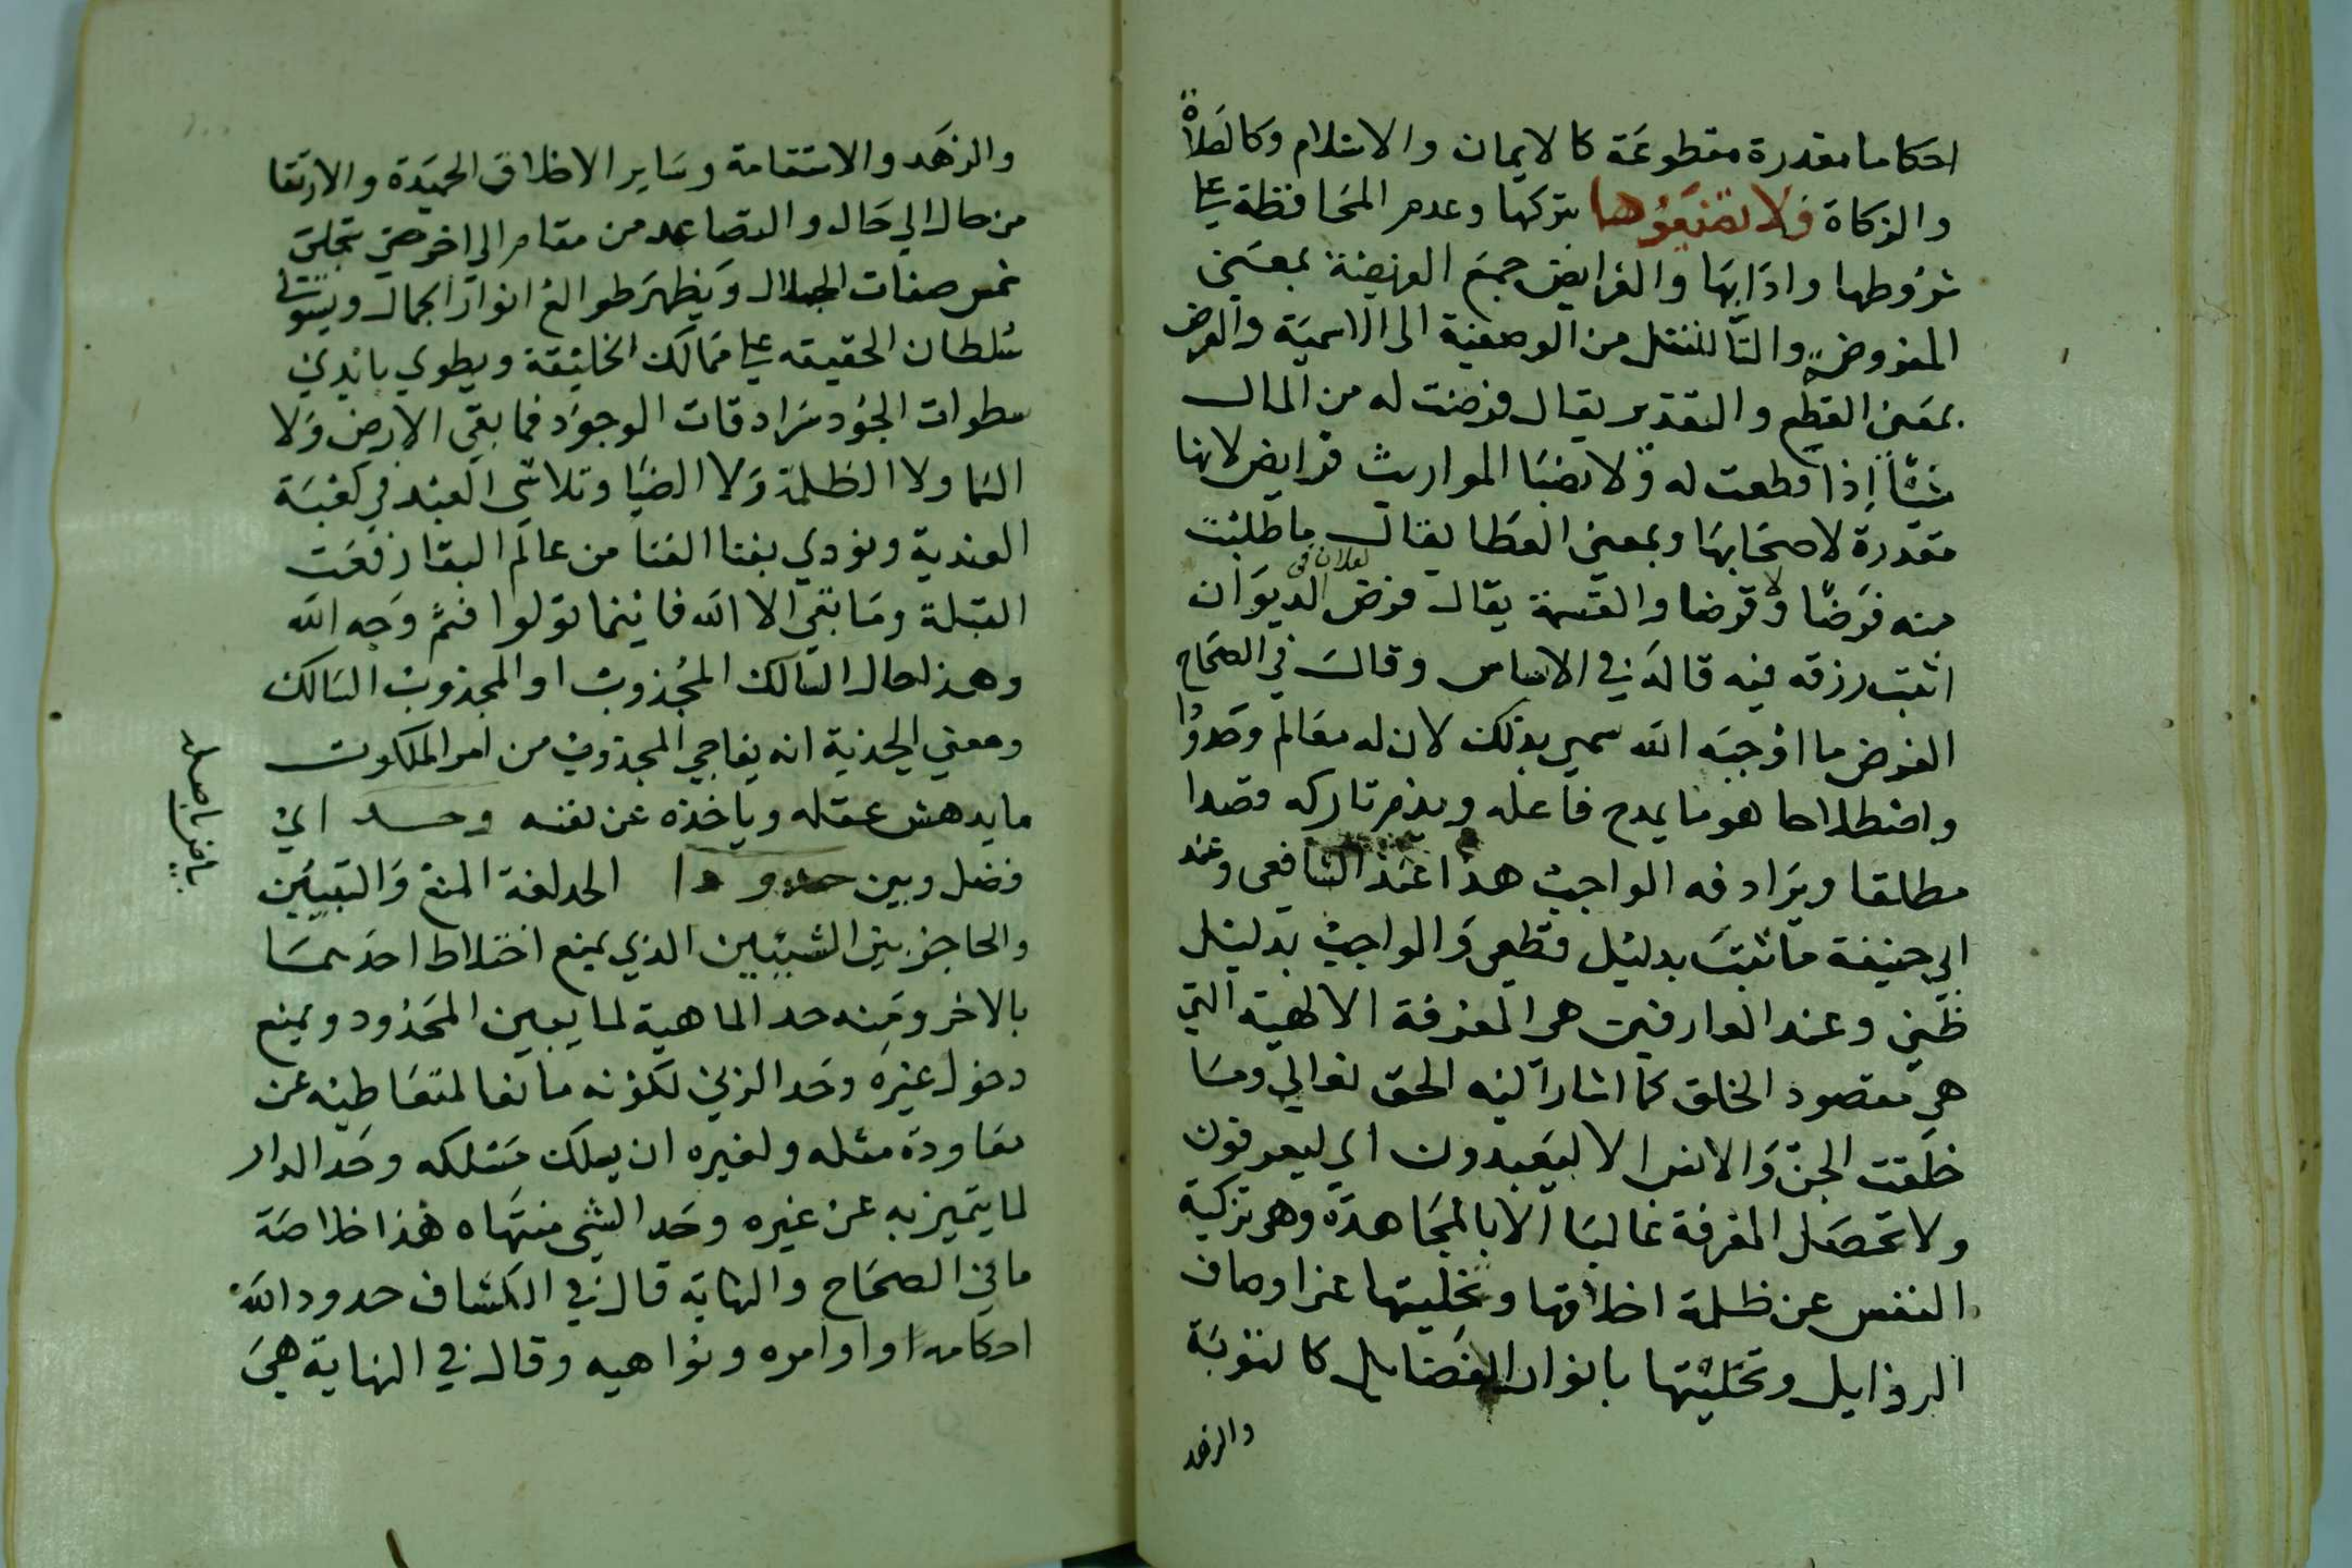 احكاما مقدرة مقطوعة كالايمان والاسلام وكالصلاة
والزكاة فلا تضيعوها بتركها وعدم المحافظة على
شروطها وادابها والفرايض جمع الفريضة بمعنى
المفروضة والتا للنقل من الوصفية الى الاسمية والفرض
بمعنى القطع والتقدير يقال فرضت له من المال
شيئا إذا قطعت له ولانصبا المواريث فرايض لانها
مقدرة لاصحابها وبمعنى العطا يقال ما طلبت
منه فرضا ولا قرضا والقسمة يقال فرض لفلان فى الديوان
اثبت رزقه فيه قاله في الاساس وقال في الصحاح
الفرض ما اوجبه الله سمي بذلك لان له معالم وحدودا
واصطلاحا هو ما يمدح فاعله ويذم تاركه قصدا
مطلقا ويرادفه الواجب هذا عند الشافعى وعند
ابي حنيفة ما ثبت بدليل قطعى والواجب بدليل
ظني وعند العارفين هى المعرفة الالهية التي
هى مقصود الخلق كما اشار اليه الحق تعالي وما
خلقت الجن والانس الا ليعبدون اي ليعرفون
ولا تحصل المعرفة غالبا الا بالمجاهدة وهى تزكية
النفس عن ظلمة اخلاقها وتخليتها عن اوصاف
الرذايل وتحليتها بانوار الفضايل كالتوبة
والزهد
والزهد والاستقامة وساير الاخلاق الحميدة والارتقا
من حال الي حال والتصاعد من مقام الي اخر حتى تتجلى
شمس صفات الجلال ويظهر طوالع انوار الجمال ويستولى
سلطان الحقيقه على ممالك الخليقة ويطوي بايدي
سطوات الجود سرادقات الوجود فما بقي الارض ولا
السما ولا الظلمة ولا الضيا وتلاشي العبد في كعبة
العندية ونودي بفنا الفنا من عالم البقا رفعت
القبلة وما بقي الا الله فاينما تولوا فثم وجه الله
وهذا حال السالك المجذوب او المجذوب السالك
ومعني الجذبة انه يفاجي المجذوب من امر الملكوت
ما يدهش عقله وياخذه عن نفسه وحد اي
فصل وبين حدودا الحد لغة المنع والتبيين
والحاجز بين الشيئين الذي يمنع اختلاط احدهما
بالاخر ومنه حد الماهية لما يبين المحدود ويمنع
دخول غيره وحد الزني لكونه مانعا لمتعاطيه عن
معاودة مثله ولغيره ان يسلك مسلكه وحد الدار
لما يتميز به عن غيره وحد الشي منتهاه هذا خلاصة
ما في الصحاح والنهاية قال في الكشاف حدود الله
احكامه او اوامره ونواهيه وقال في النهاية هي